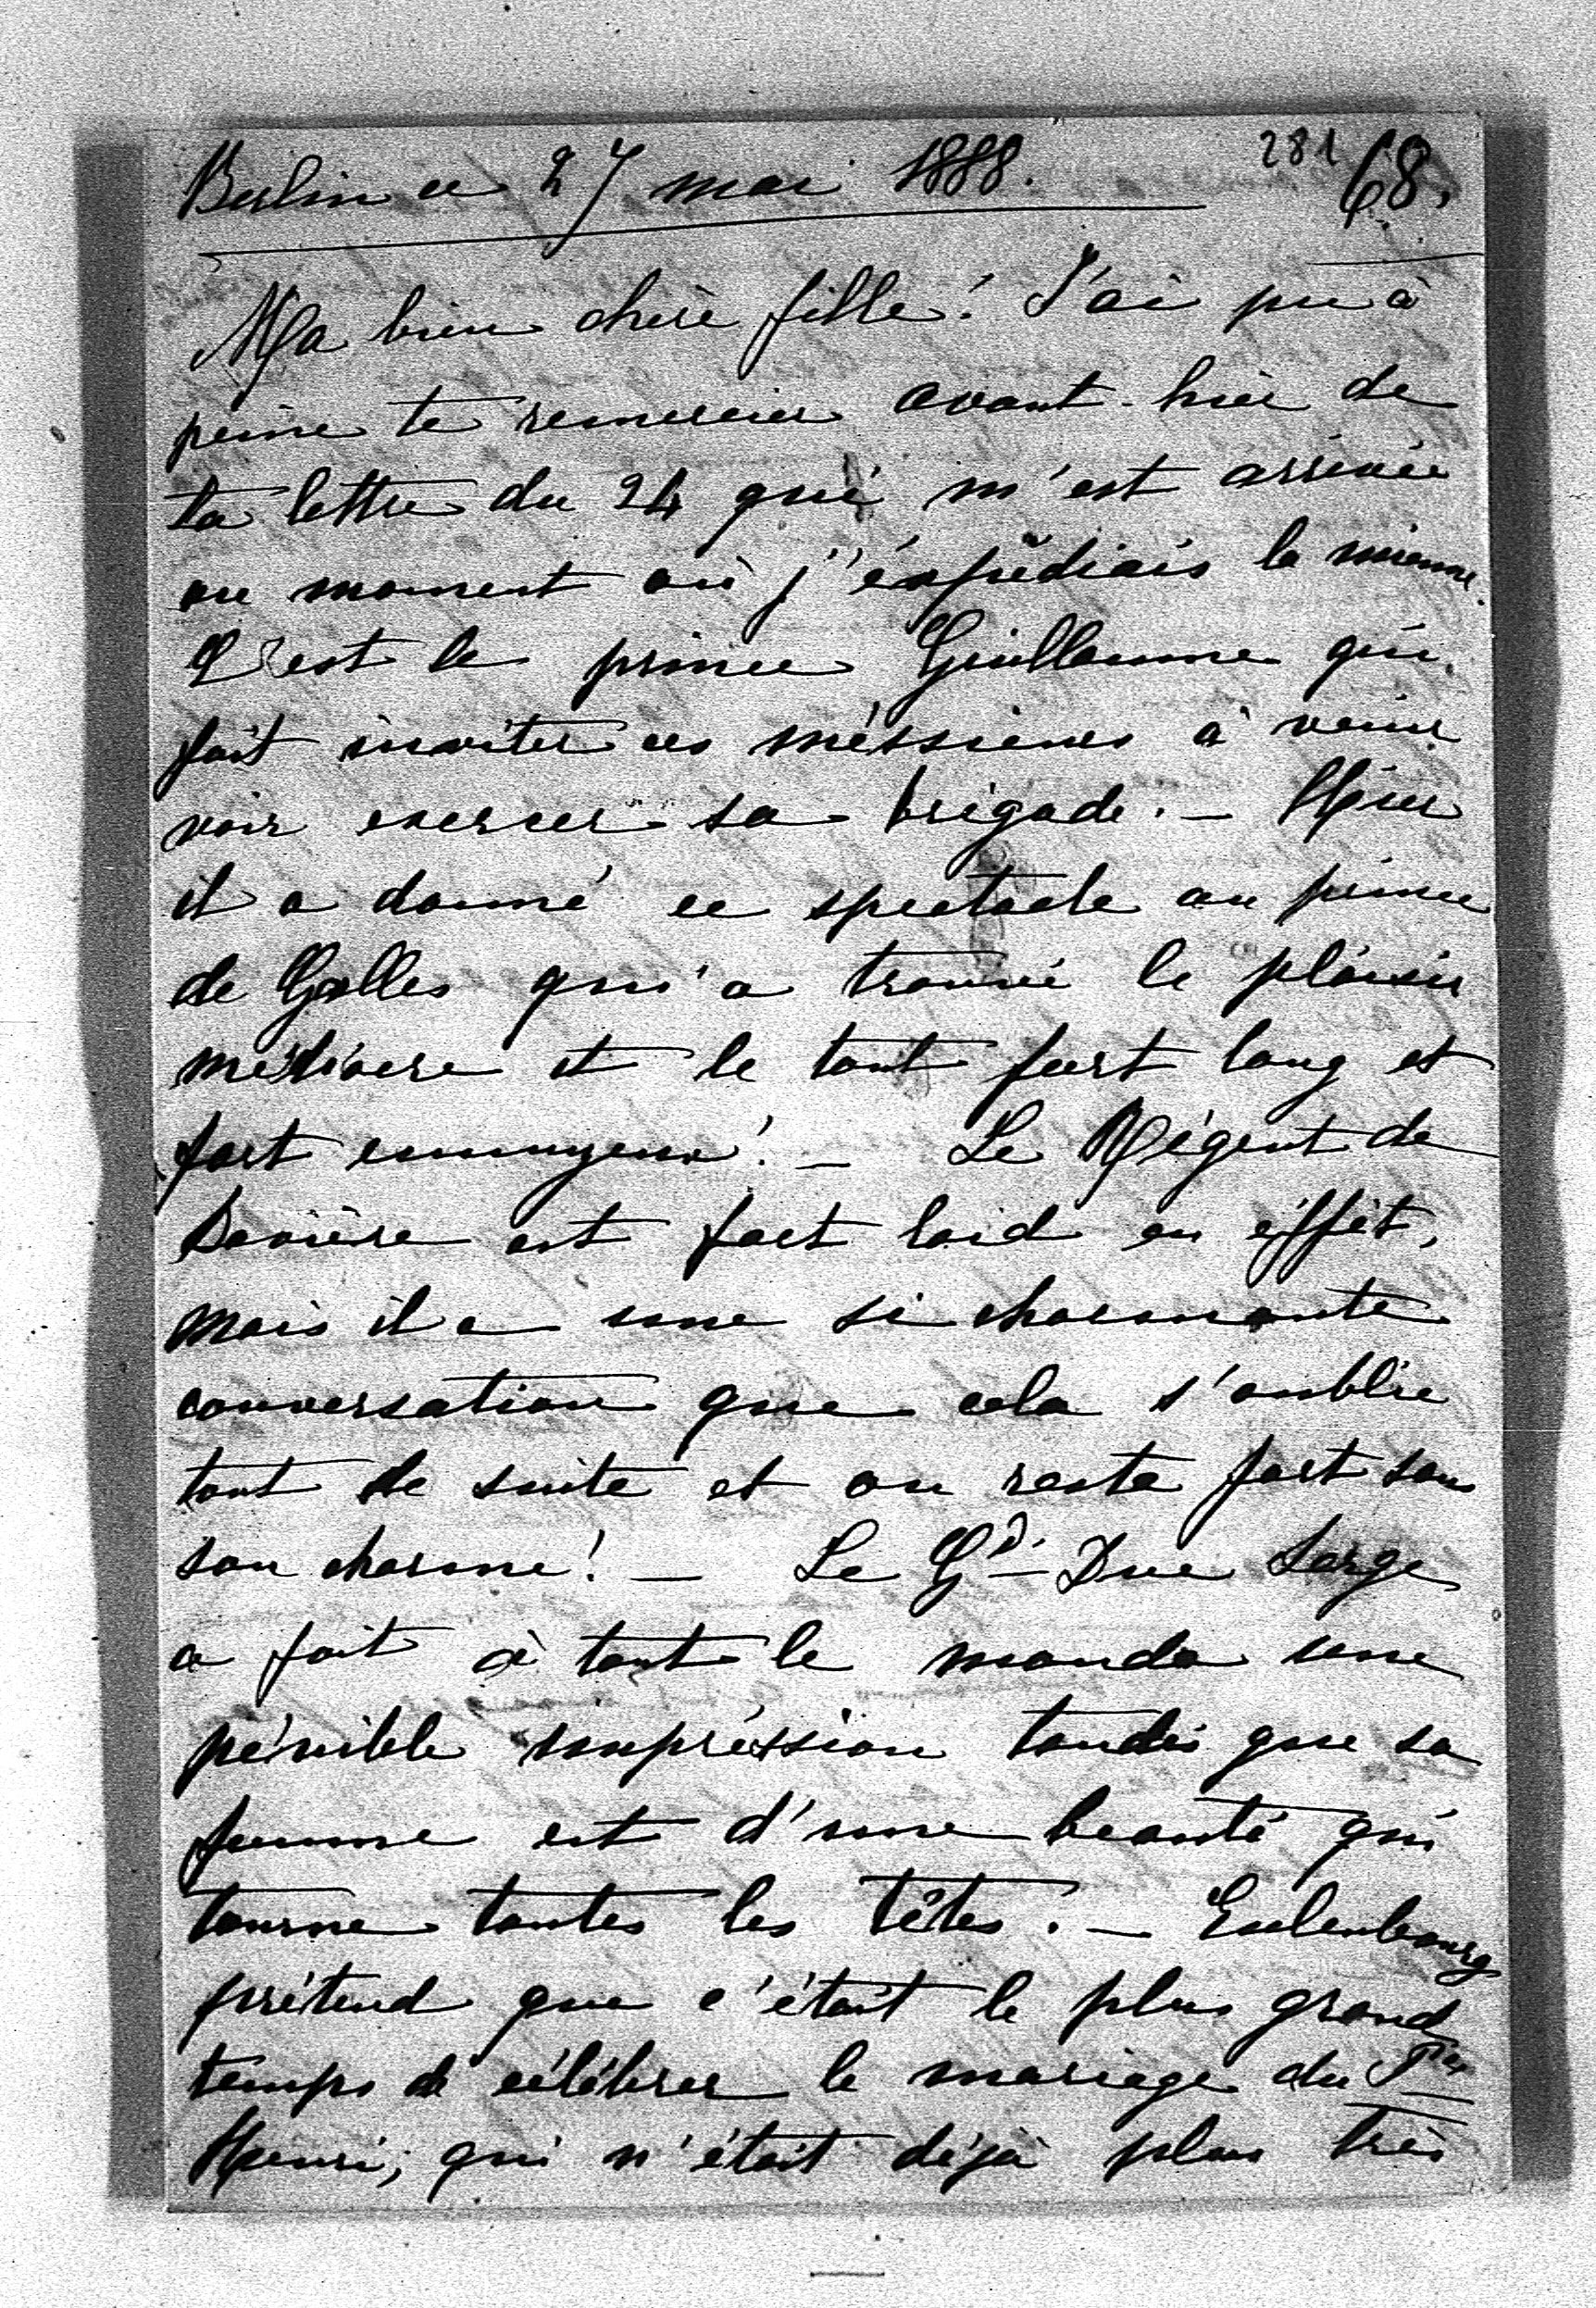 Berlin ce 27 mai 1888. 281 68.
Ma bien chère fille! J'ai pu à
peine te remercier avant-hier de
ta lettre du 24 qui m'est arrivée
au moment où j'éxpédiais la mienne.
C'est le prince Guillaume qui
fait inviter ces méssieurs à venir
voir exercer sa brigade. – Hier
il a donné ce spectacle au prince
de Galles qui a trouvé le plaisir
médiocre et le tout fort long et
fort ennuyeux! – Le Régent de
Bavière est fort laid en éffet,
mais il a une si charmante
conversation que cela s'oublie
tout de suite et on reste fort sous
son charme! – Le Gd– Duc Serge
a fait à tout le monde une
pénible impréssion tandis que sa
femme est d'une beauté qui
tourne toutes les têtes. – Eulenbourg
prétend que c'était le plus grand
temps de célébrer le mariage du Pce
Henri, qui n'était déjà plus très